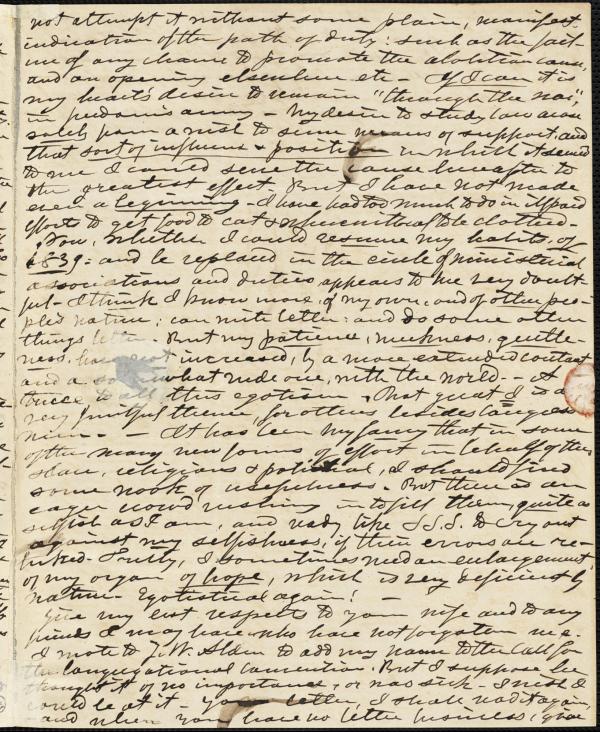 not attempt it without some plain, manifest
indication of the path of duty: such as the fail-
ure of any chance to promote the abolition cause,
and an opening elsewhere etc - If I can it is
my heart's desire to remain "through the war",
in pedouis army - My desire to study law arose
solely from a wish to some means of support, and
that sort of influence & position in which it seemed
to me I could serve the cause hereafter to
the greatest effect. But I have not made
even a beginning - I have had too much to do in ill paid
efforts to get food to eat & wherewithal to be clothed -
Now, whether I could resume my habits, of
1839: and be replaced in the circle of ministerial
associations and duties appears to me very doubt-
ful - I think I know more, of my own, and of other peo-
ple's nature; can write better: and do some other
things better. But my patience, meekness, gentle-
ness, have not increased, by a more extended contact
and a somewhat rude one, with the world - A
truce to all this egotism. That great I is a
very fruitful theme for others besides
him. - - It has been my fancy that in some
of the many new forms of effort in behalf of the
slave, religious & political, I should find
some nook of usefulness. But there is an
eager crowd rushing in to fill them, quite as
selfish as I am, and ready like S.S.S. to cry out
against my selfishness, if their errors are re-
buked - Truly, I sometimes need an enlargement,
of my organ of hope, which is very deficient by
nature - Egotistical again! -
Give my best respects to your wife and to any
friends I may have who have not forgotten me.
I wrote to J. W. Alden to add my name to the Call for
the Congregational Convention. But I suppose he
thought it of no importance, or was sick - I wish I
could be at it - your letter, I shall read it again,
and when you have no better business, give